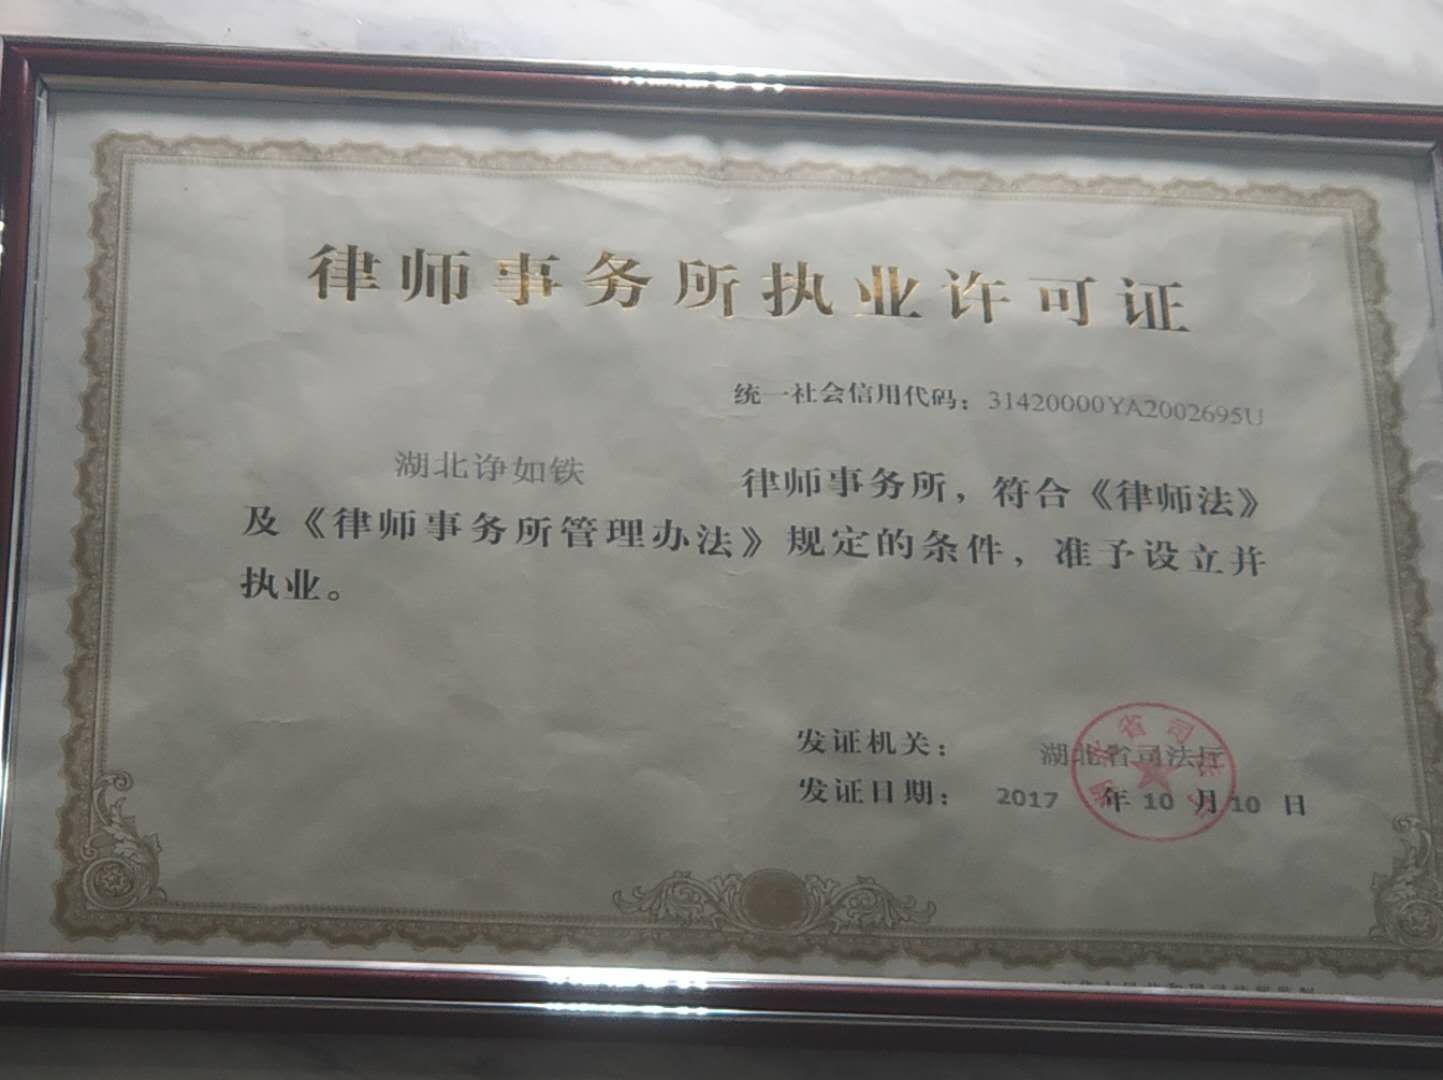 律师事务所执业许可证
统一社会信用代码：31420000YA2002695U
湖北诤如铁 律师事务所，符合《律师法》
及《律师事务所管理办法》规定的条件，准予设立并
执业。
发证机关： 湖北省司法厅
发证日期： 2017 年 10 月 10 日